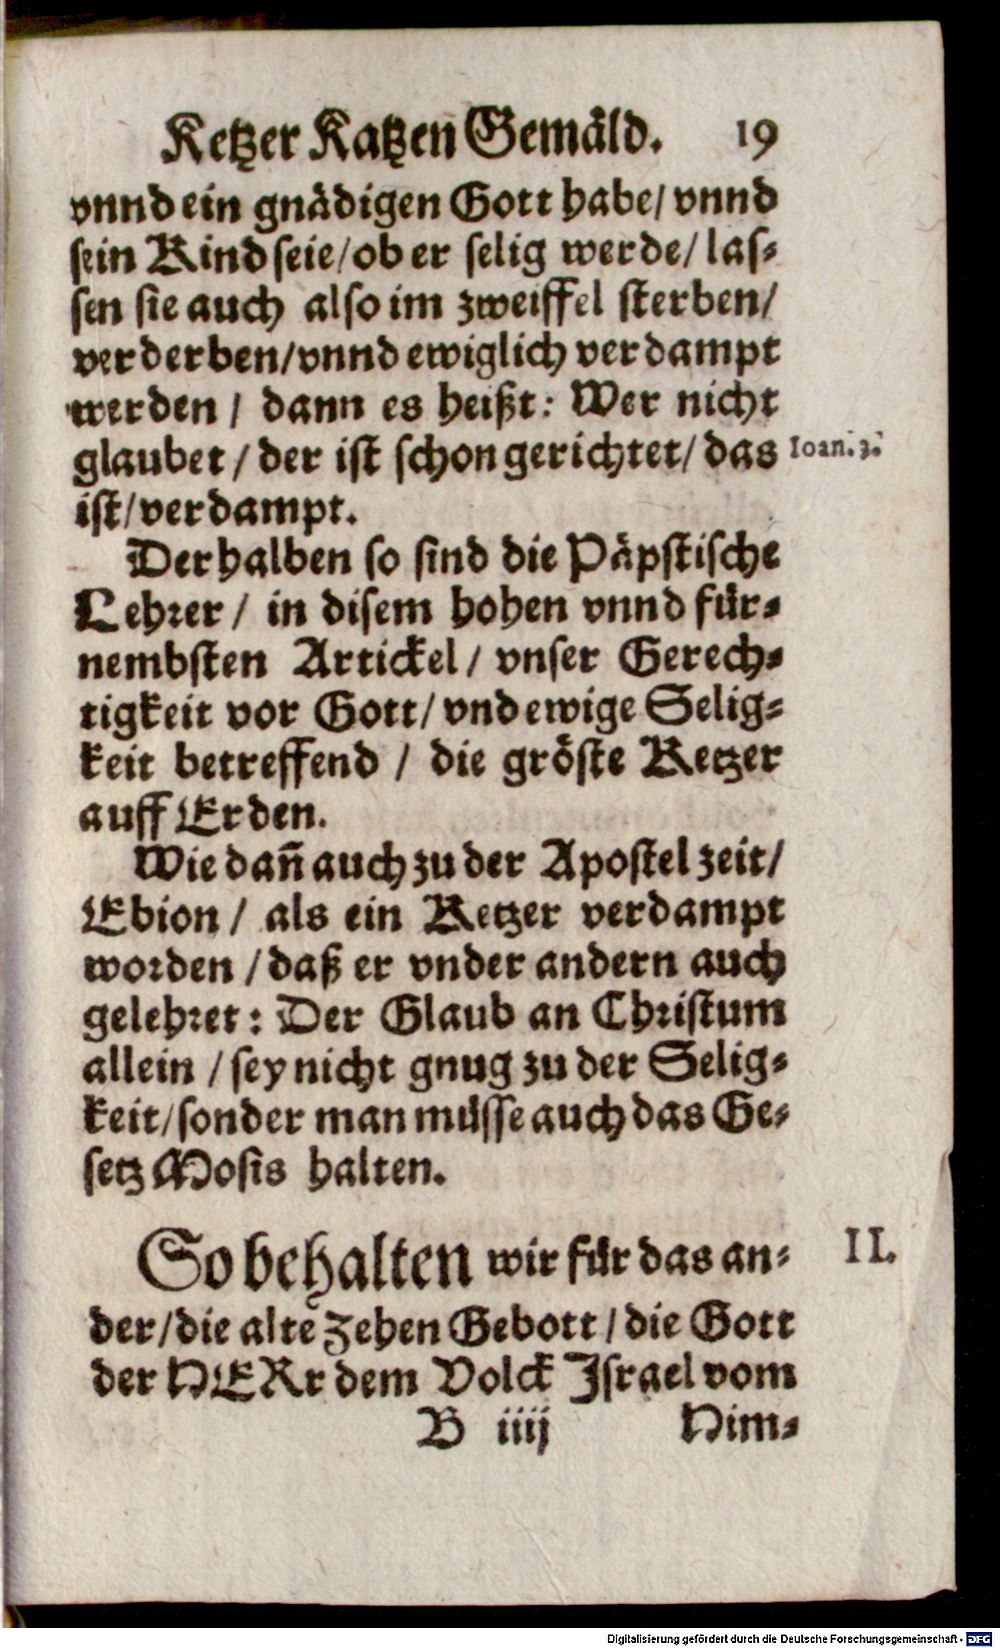 Ketzer Katzen Gemäld. 19
vnnd ein gnädigen Gott habe/ vnnd
sein Kind seie/ ob er selig werde/ las-
sen sie auch also im zweiffel sterben/
verderben/ vnnd ewiglich verdampt
werden / dann es heißt: Wer nicht
glaubet / der ist schon gerichtet/ das Ioan. 3.
ist/ verdampt.
Derhalben so sind die Päpstische
Lehrer / in disem hohen vnnd für-
nembsten Artickel / vnser Gerech-
tigkeit vor Gott/ vnd ewige Selig-
keit betreffend / die gröste Ketzer
auff Erden.
Wie dañ auch zu der Apostel zeit/
Ebion / als ein Ketzer verdampt
worden / daß er vnder andern auch
gelehret: Der Glaub an Christum
allein / sey nicht gnug zu der Selig-
keit/ sonder man müsse auch das Ge-
setz Mosis halten.
So behalten wir für das an- II.
der/ die alte Zehen Gebott / die Gott
der HERr dem Volck Israel vom
B iiij Him-
Digitalisierung gefördert durch die Deutsche Forschungsgemeinschaft - DFG